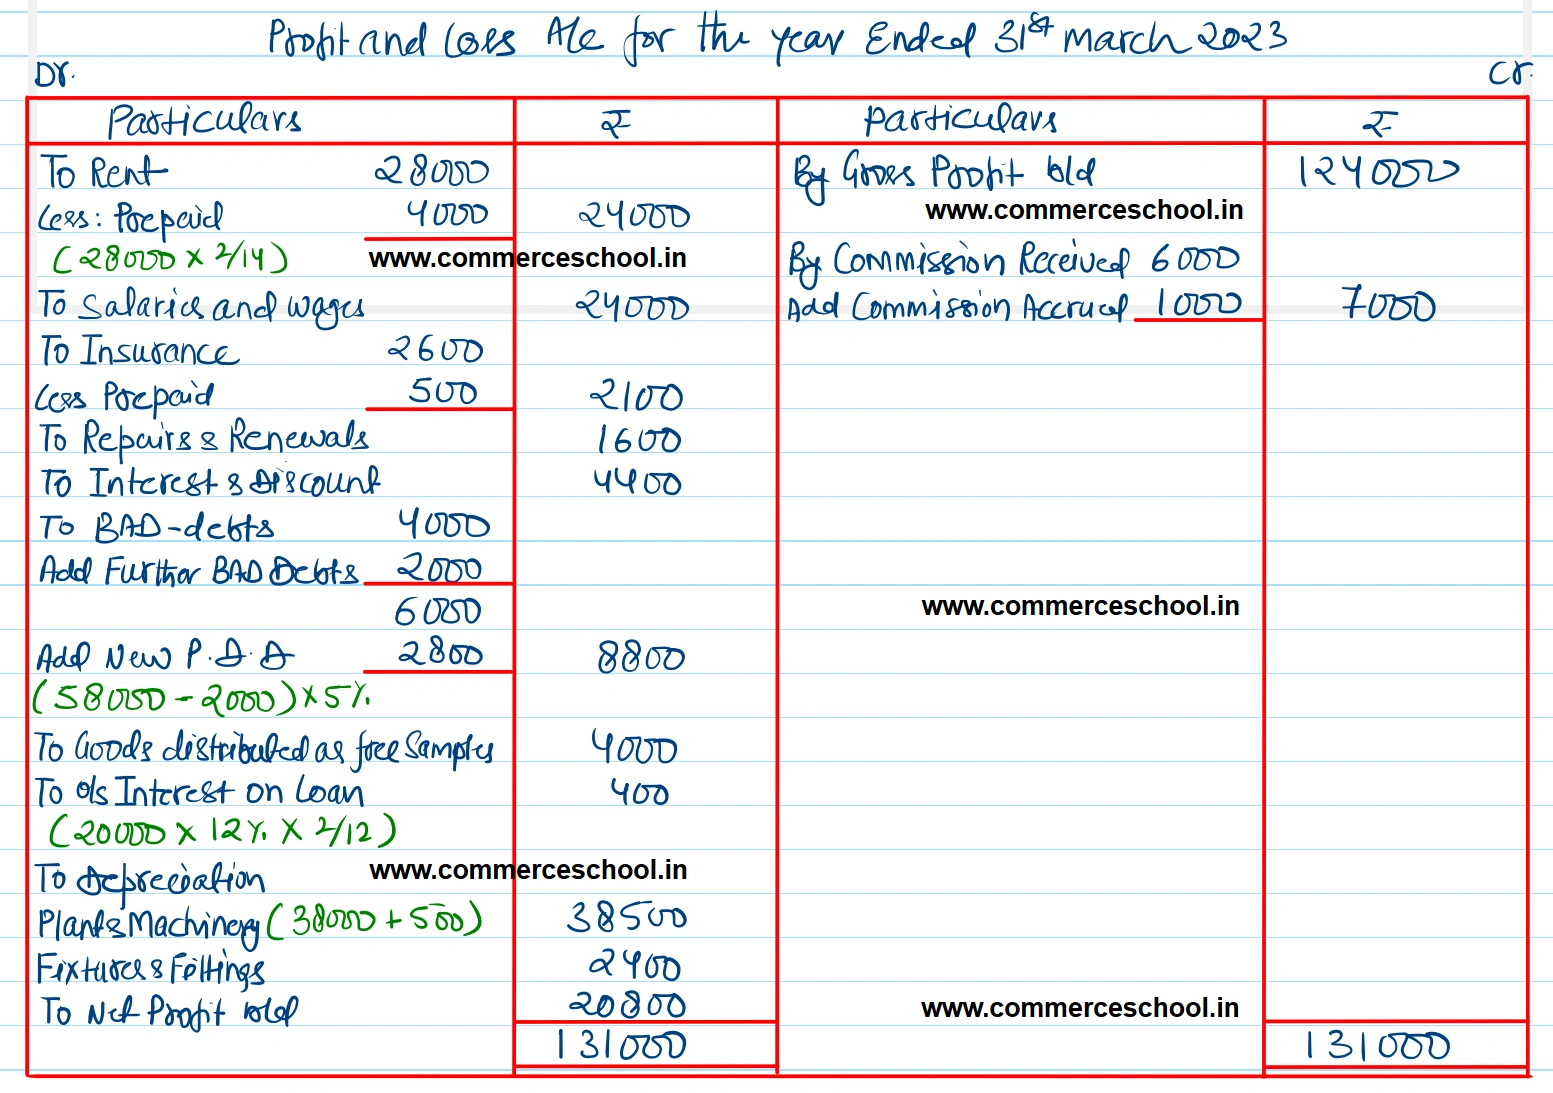 Profit and Loss A/c for the year Ended 31st March 2023
Dr. Cr.
Particulars ₹ Particulars ₹
To Rent 28000 By Gross Profit b/d 124000
Less: Prepaid 4000 24000 www.commerceschool.in
(28000 × 2/14) www.commerceschool.in By Commission Received 6000
To Salaries and wages 24000 Add Commission Accrued 1000 7000
To Insurance 2600
Less Prepaid 500 2100
To Repairs & Renewals 1600
To Interest & Discount 4400
To BAD-debts 4000
Add Further BAD Debts 2000
6000 www.commerceschool.in
Add New P.D.D 2800 8800
(58000 - 2000) × 5%
To Goods distributed as free Samples 4000
To o/s Interest on Loan 400
(20000 × 12% × 2/12)
To Depreciation www.commerceschool.in
Plant & Machinery (38000 + 500) 38500
Fixtures & Fittings 2400
To Net Profit b/d 20800 www.commerceschool.in
131000 131000